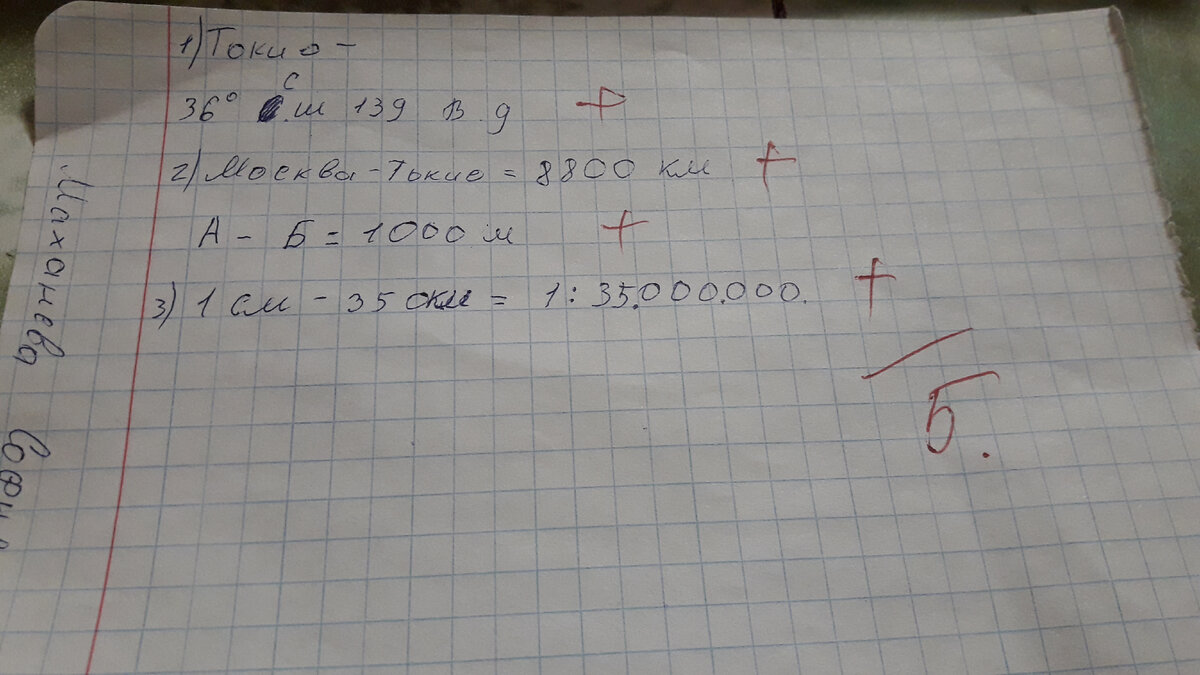 1) Токио -
36° с.ш 139 в д +
2) Москва - Токио = 8800 км +
А - Б = 1000 м +
3) 1 см - 350км = 1 : 35.000.000. +
5.
Маханева Софи